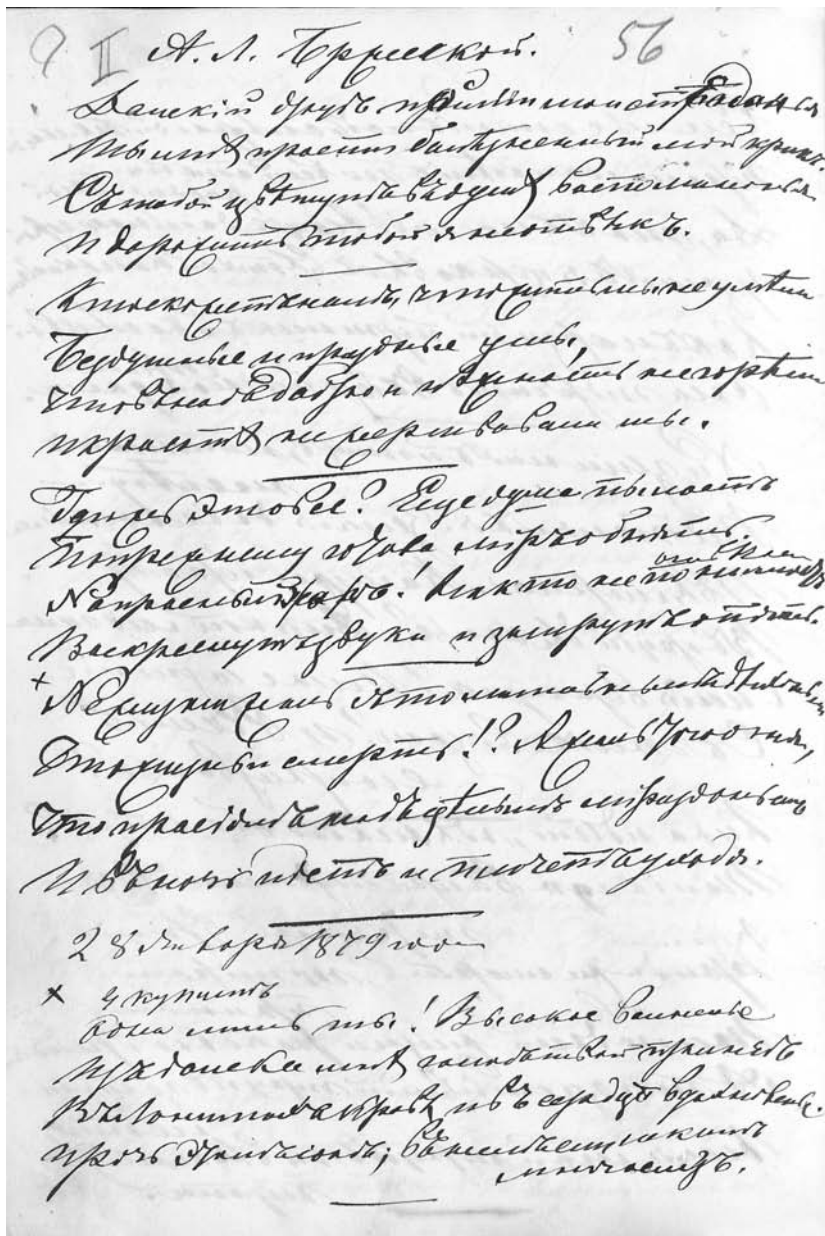 II А. Л. Бржеской. 56
Далекій другъ пойми мои страданья
Ты мнѣ прости болѣзненный мой крикъ.
Съ тобой цвѣтутъ въ душѣ воспоминанья
И дорожить тобой я не отвыкъ.
Кто скажетъ намъ, что жить мы не умѣли
Бездушные и праздные умы,
Что въ насъ добро и нѣжность не горѣли
И красотѣ не жертвовали мы.
Гдѣ жъ это все? Еще душа пылаетъ
Попрежнему готова міръ обнять.
Напрасный жаръ! Никто не понимаетъ
Воскреснутъ звуки и замрутъ опять.
× Не жизни жаль съ томительнымъ
Что жизнь и смерть!? А жаль того огня,
Что просіялъ надъ цѣлымъ мірозданьемъ
И въ ночь идетъ и плачетъ уходя.
28 Января 1879 года
× 4 куплетъ
Одна лишь ты! Высокое волненье
Издалека мнѣ голосъ твой принесъ
Въ ланитахъ кровь и въ сердцѣ вдохновенье.
Прочь этотъ сонъ; въ немъ слишкомъ
много слезъ.